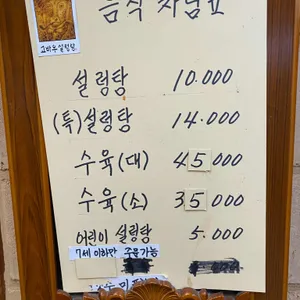 음식 차림표
고려옥설렁탕
설렁탕 10.000
(특)설렁탕 14.000
수육(대) 45.000
수육(소) 35.000
어린이 설렁탕 5.000
7세 이하만 주문가능